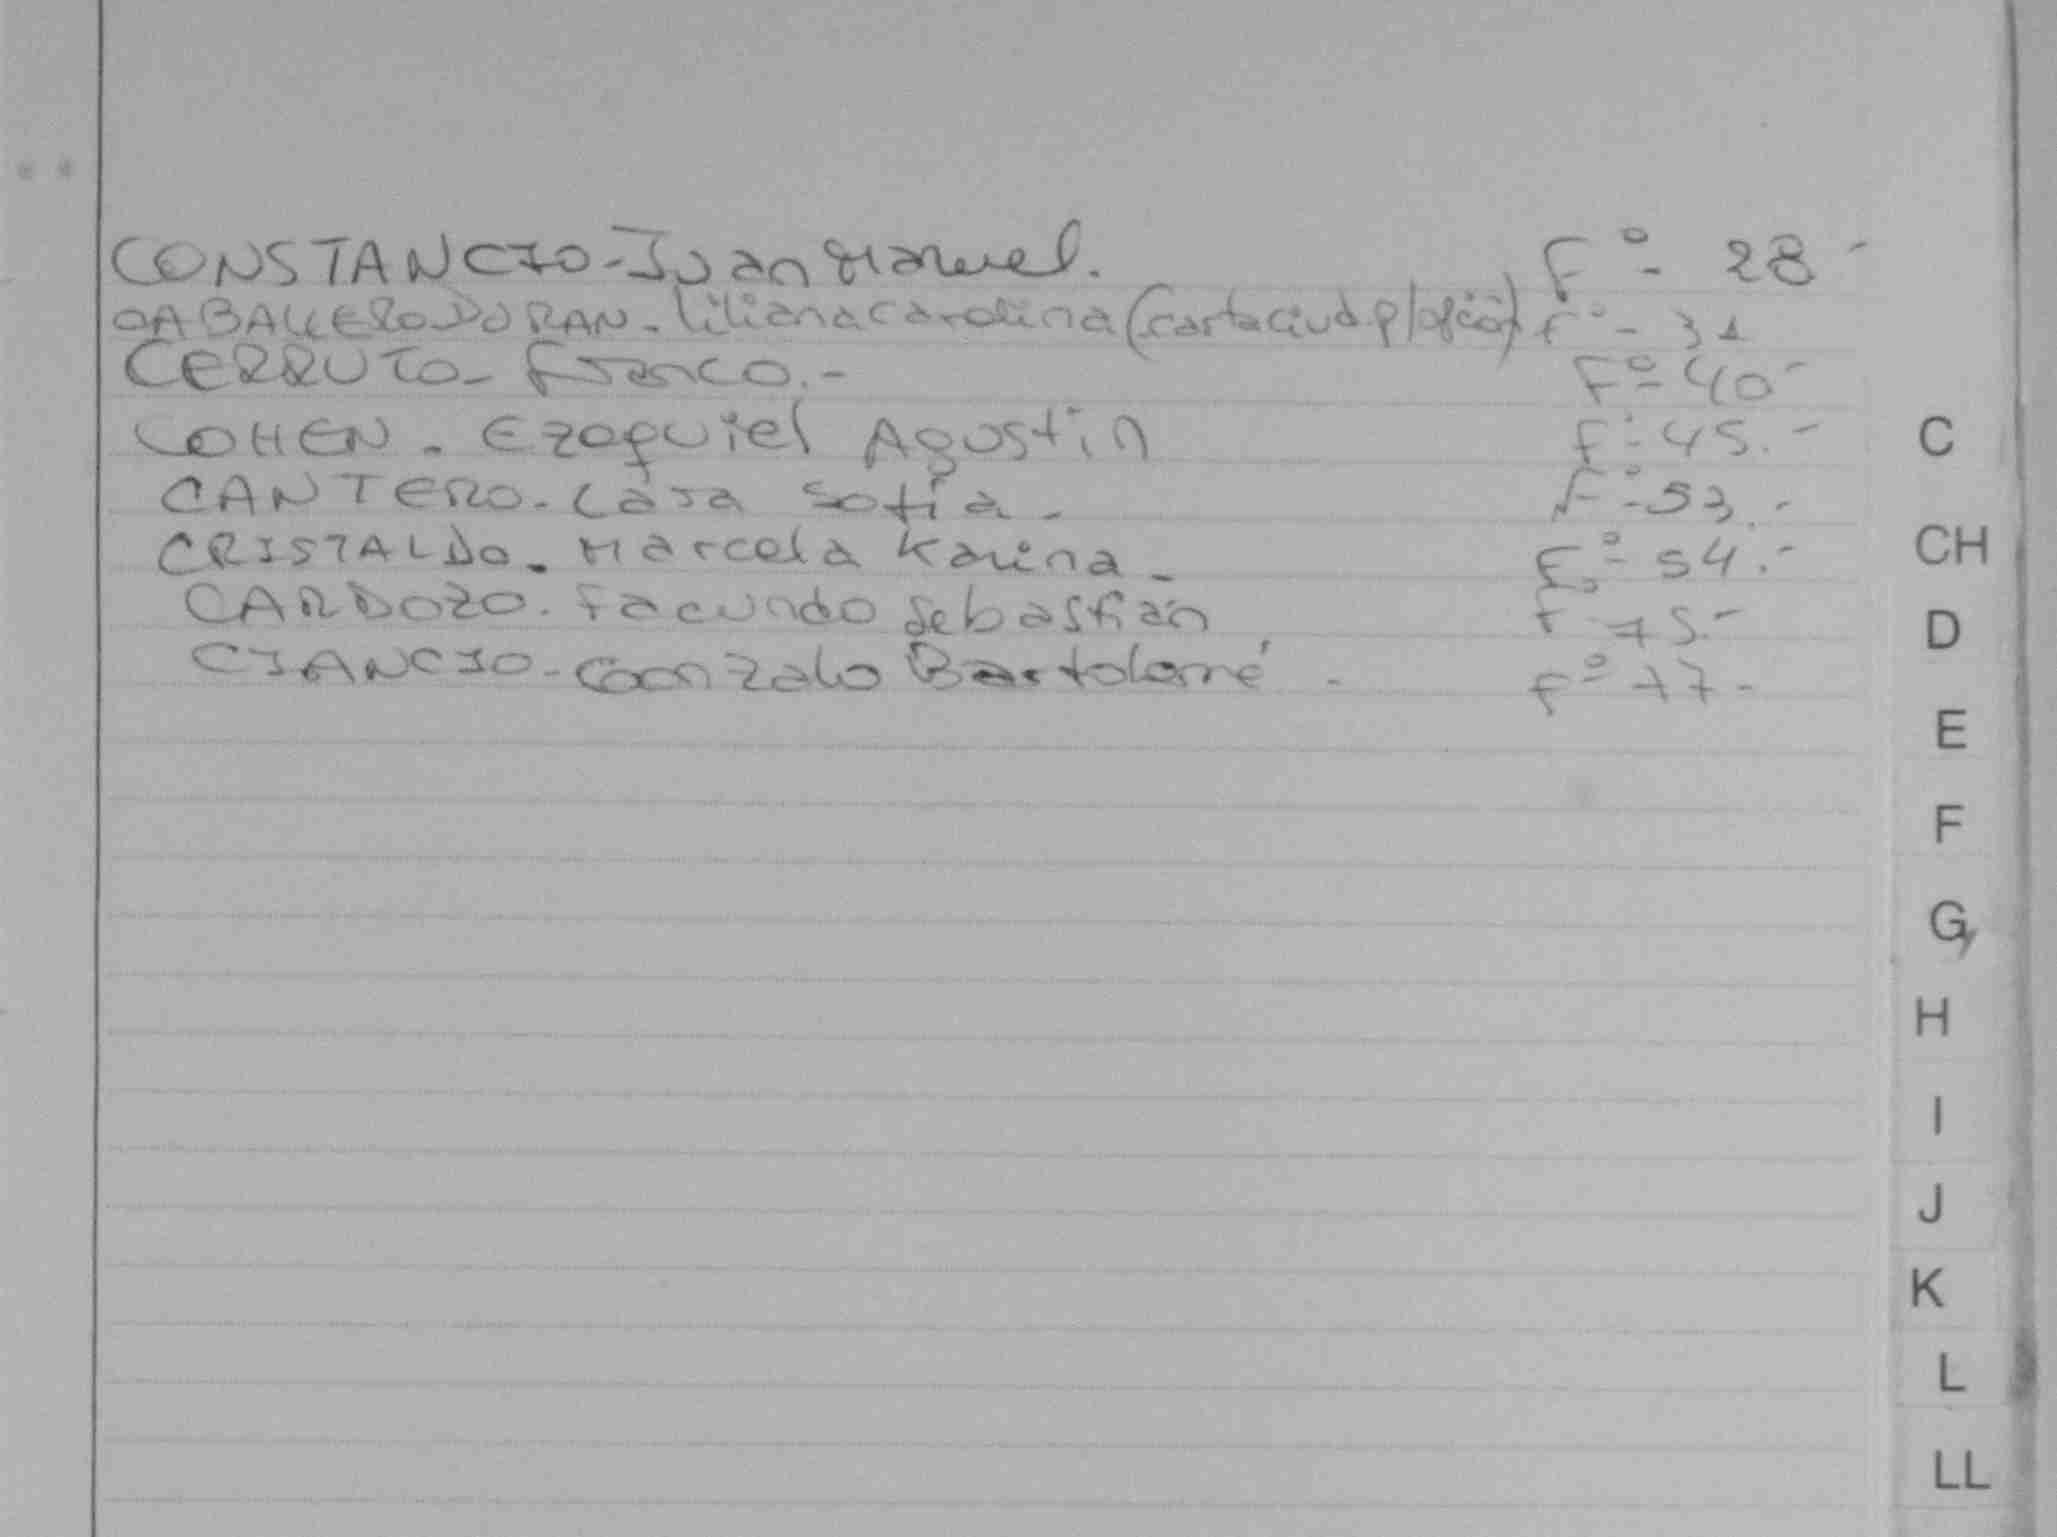 CONSTANCIO - Juan Manuel. Fº- 28 -
CABALLERO DURAN - Liliana Carolina (carta ciud. p/opción) Fº- 31
CERRUTO - Franco.- Fº- 40 -
COHEN - Ezequiel Agustín Fº- 45.-
CANTERO - Lara Sofía - Fº- 53.-
CRISTALDO - Marcela Karina - Fº- 54.-
CARDOZO - Facundo Sebastián Fº 75.-
CIANCIO - Gonzalo Bartolomé - Fº 77-
C
CH
D
E
F
G
H
I
J
K
L
LL